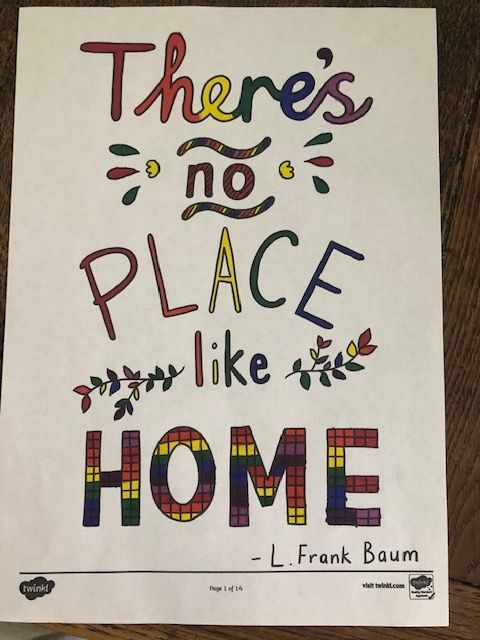 There's
no
PLACE
like
HOME
- L. Frank Baum
twinkl
Page 1 of 14
visit twinkl.com